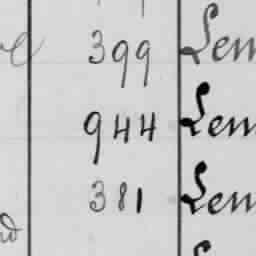 399 Lem
944 Lem
381 Lem